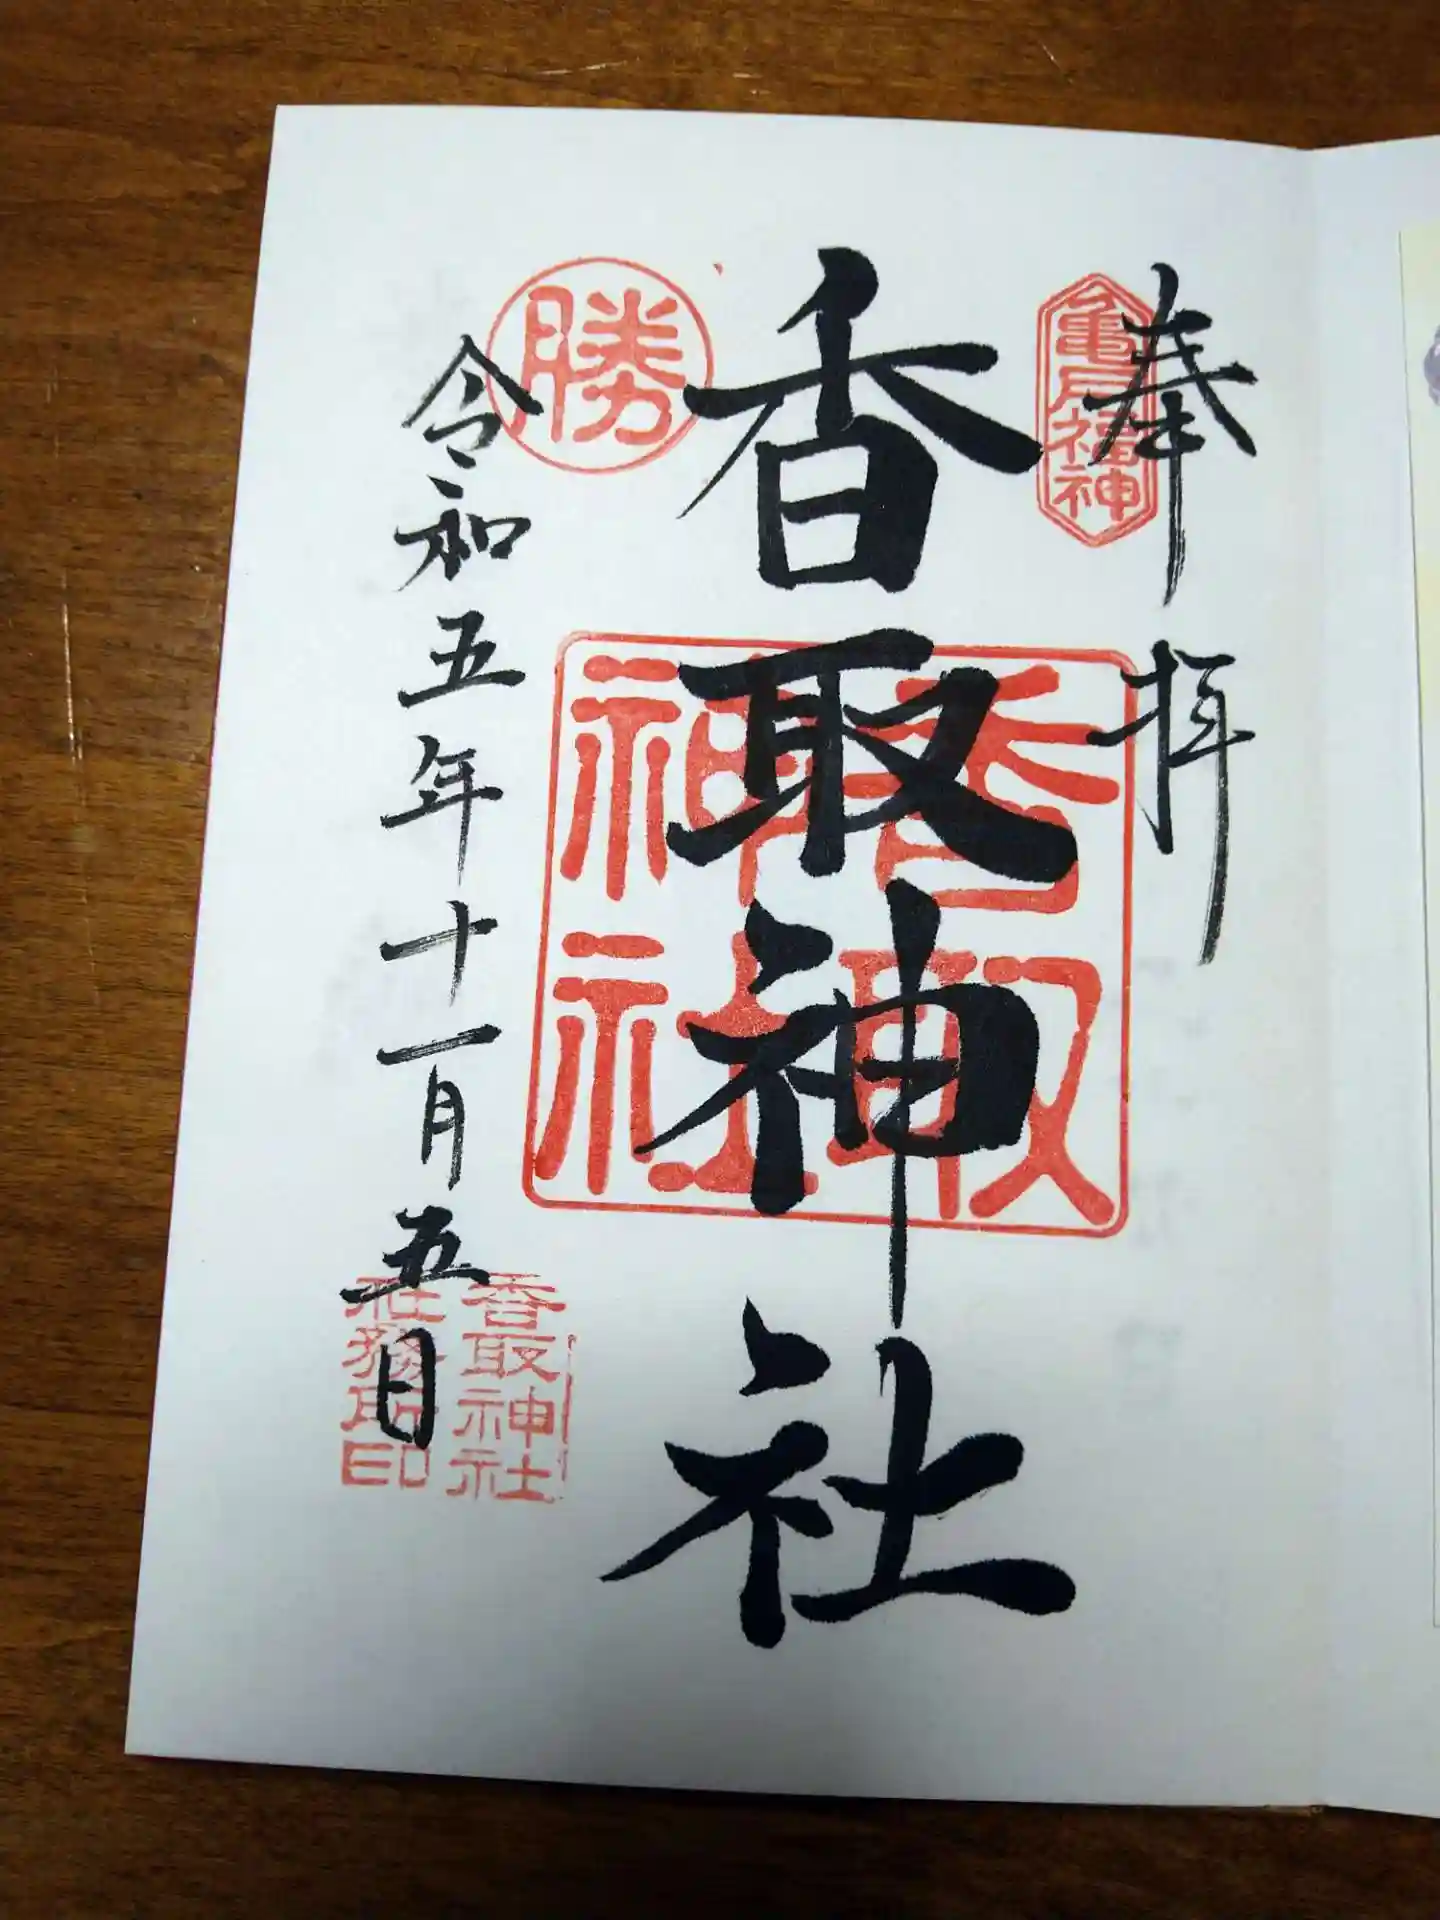 奉拝
亀戸福神
香取神社
香取
神社
勝
令和五年十一月五日
香取神社
社務所印